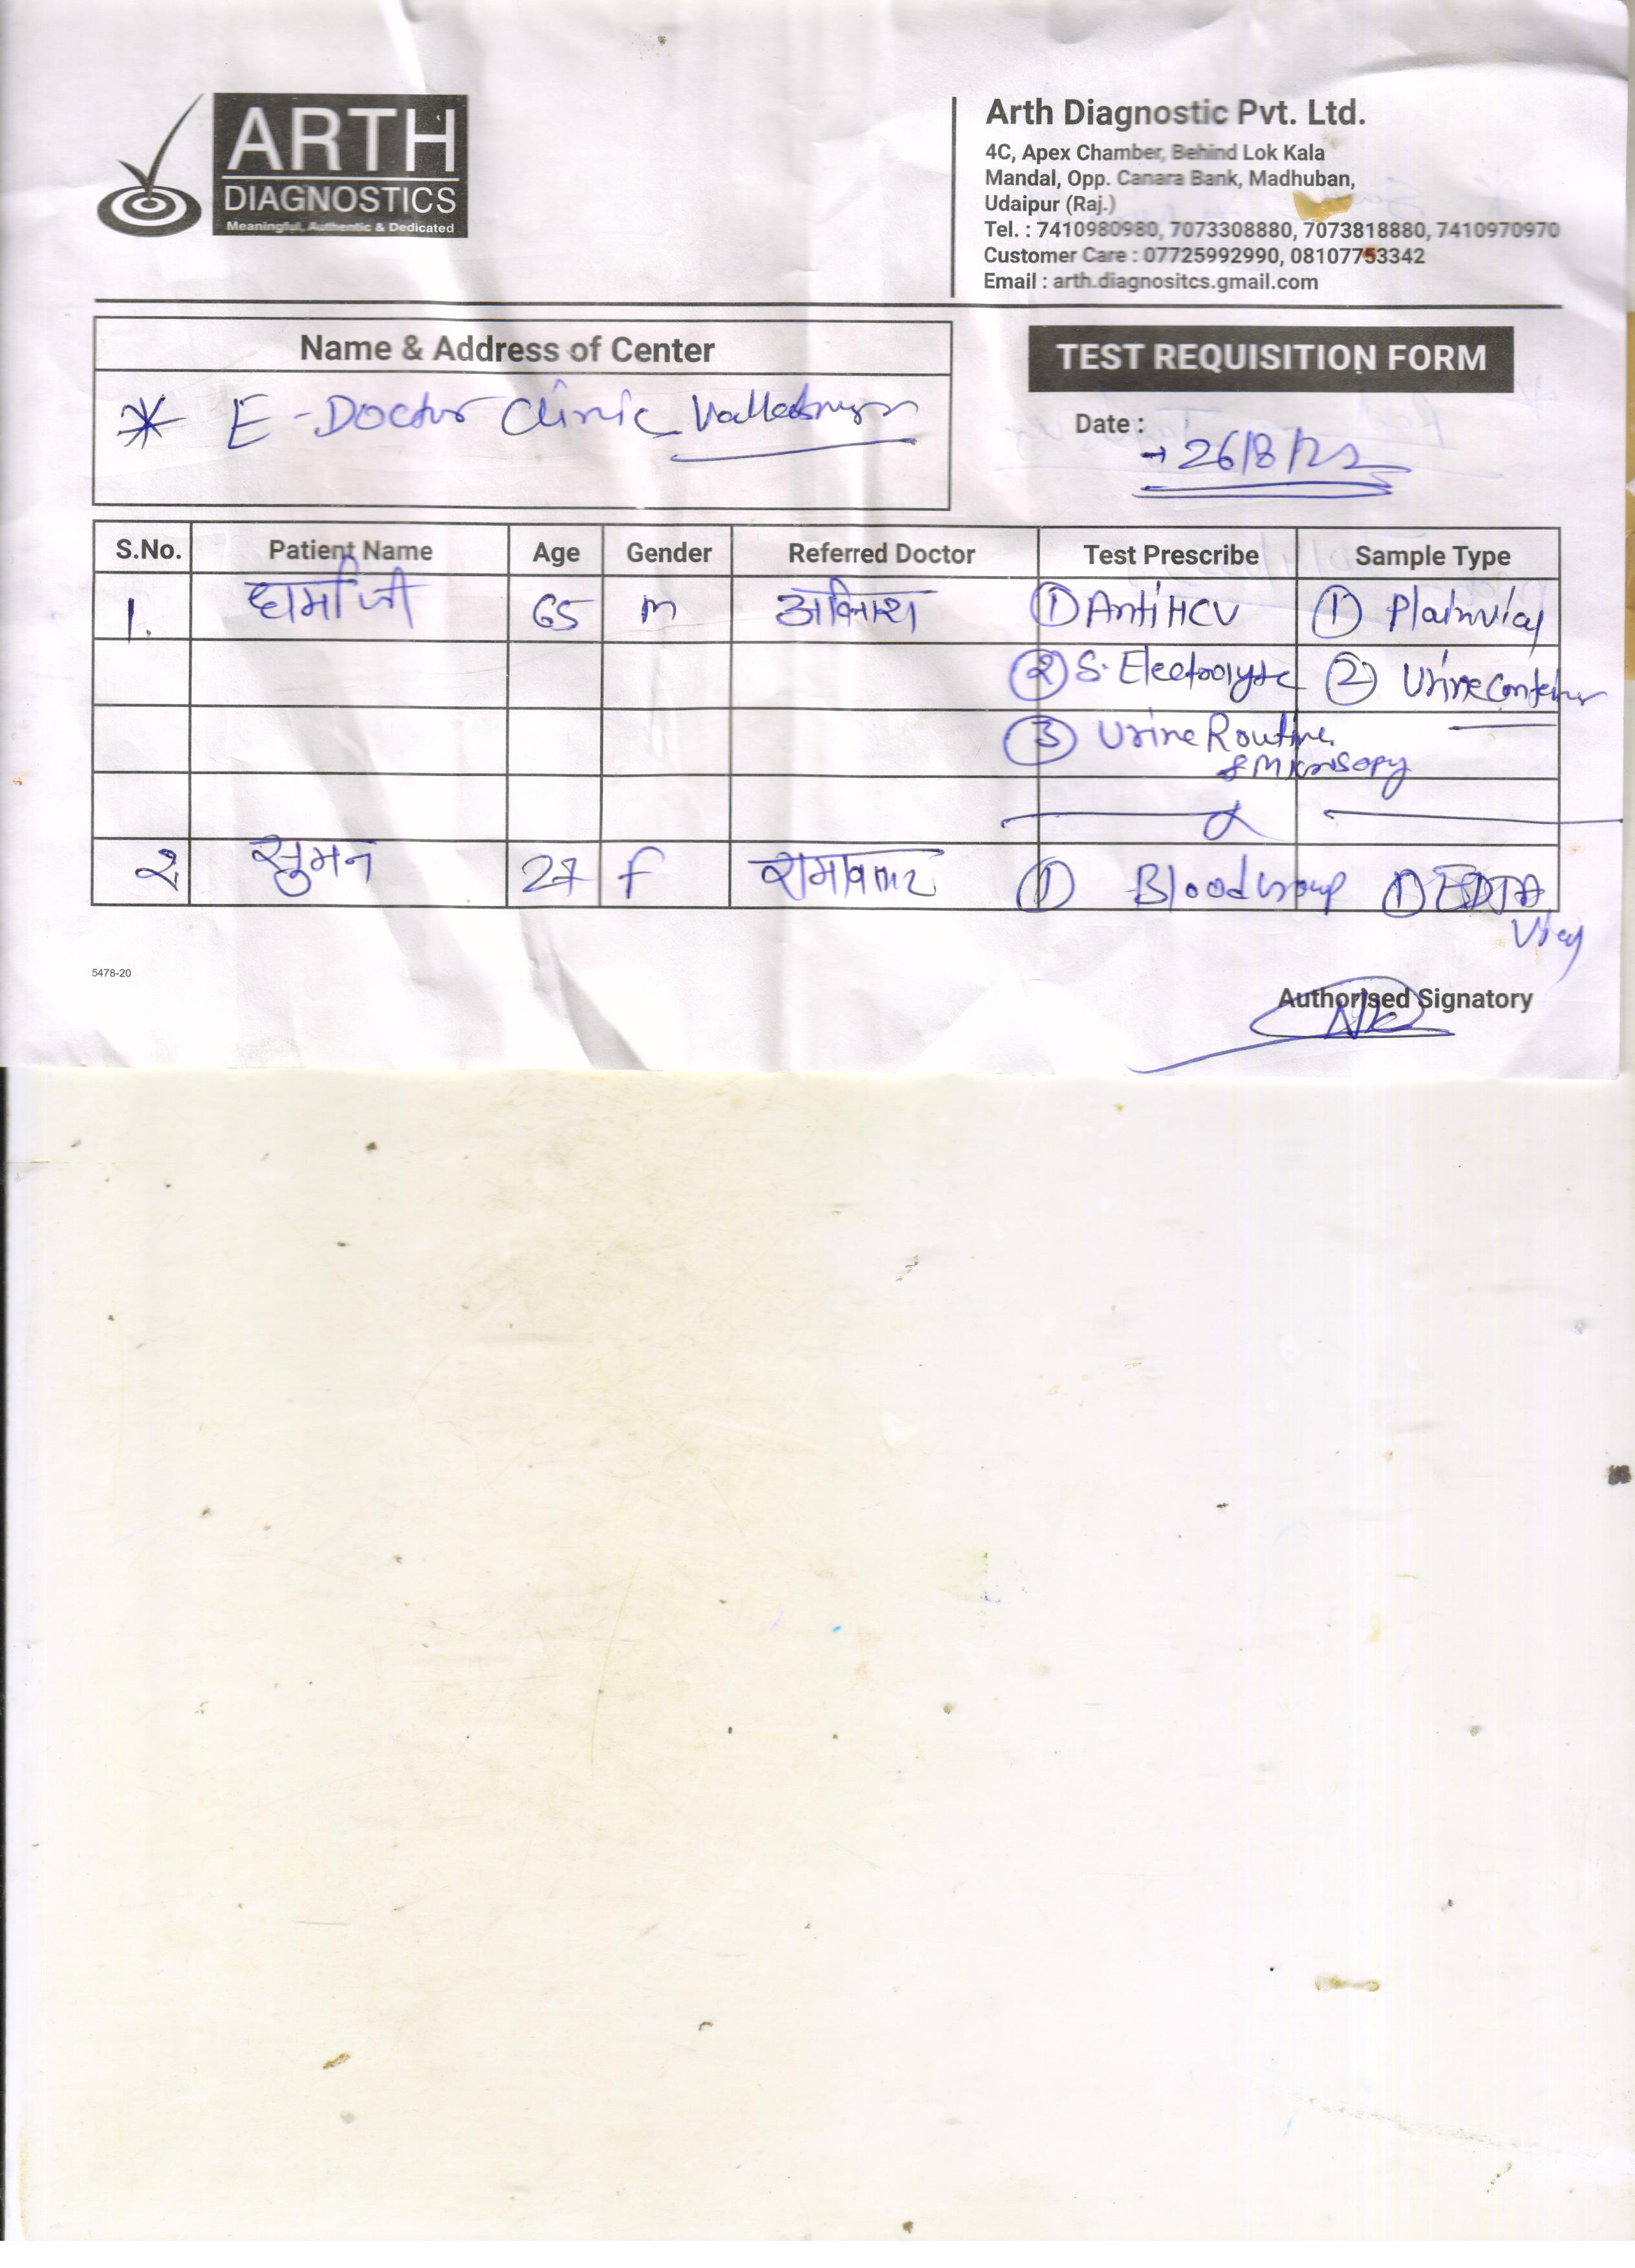 ARTH
DIAGNOSTICS
Meaningful, Authentic & Dedicated
Arth Diagnostic Pvt. Ltd.
4C, Apex Chamber, Behind Lok Kala
Mandal, Opp. Canara Bank, Madhuban,
Udaipur (Raj.)
Tel. : 7410980980, 7073308880, 7073818880, 7410970970
Customer Care : 07725992990, 08107753342
Email : arth.diagnositcs.gmail.com
Name & Address of Center
* E-Doctor Clinic
TEST REQUISITION FORM
Date :
→ 26/8/22
S.No. Patient Name Age Gender Referred Doctor Test Prescribe Sample Type
1. धर्माजी 65 m अविनाश ① Anti HCV ① Plain vial
② S. Electrolyte ② Urine Container
③ Urine Routine
& Microsopy
२ सुमन 27 F ① Blood Group ① EDTA
Vial
5478-20
Authorised Signatory